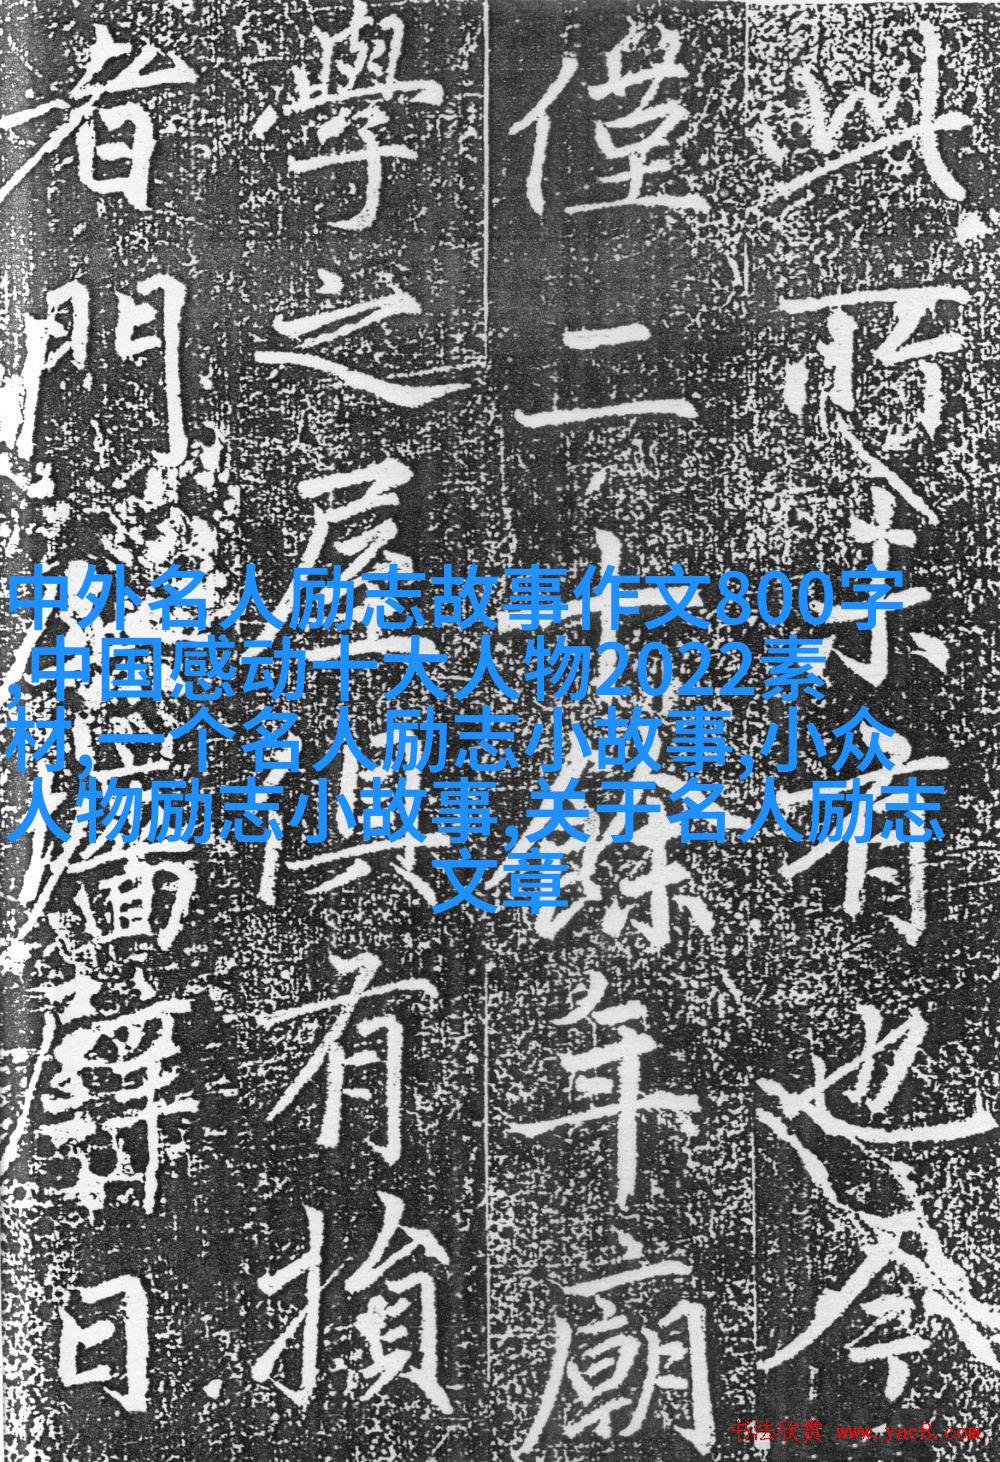 所未有也今
僅二十餘年廟
學之屋俱有損
者門日
中外名人励志故事作文800字
,中国感动十大人物2022素
材,一个名人励志小故事,小众
人物励志小故事,关于名人励志
文章
书法欣赏 www.yac8.com